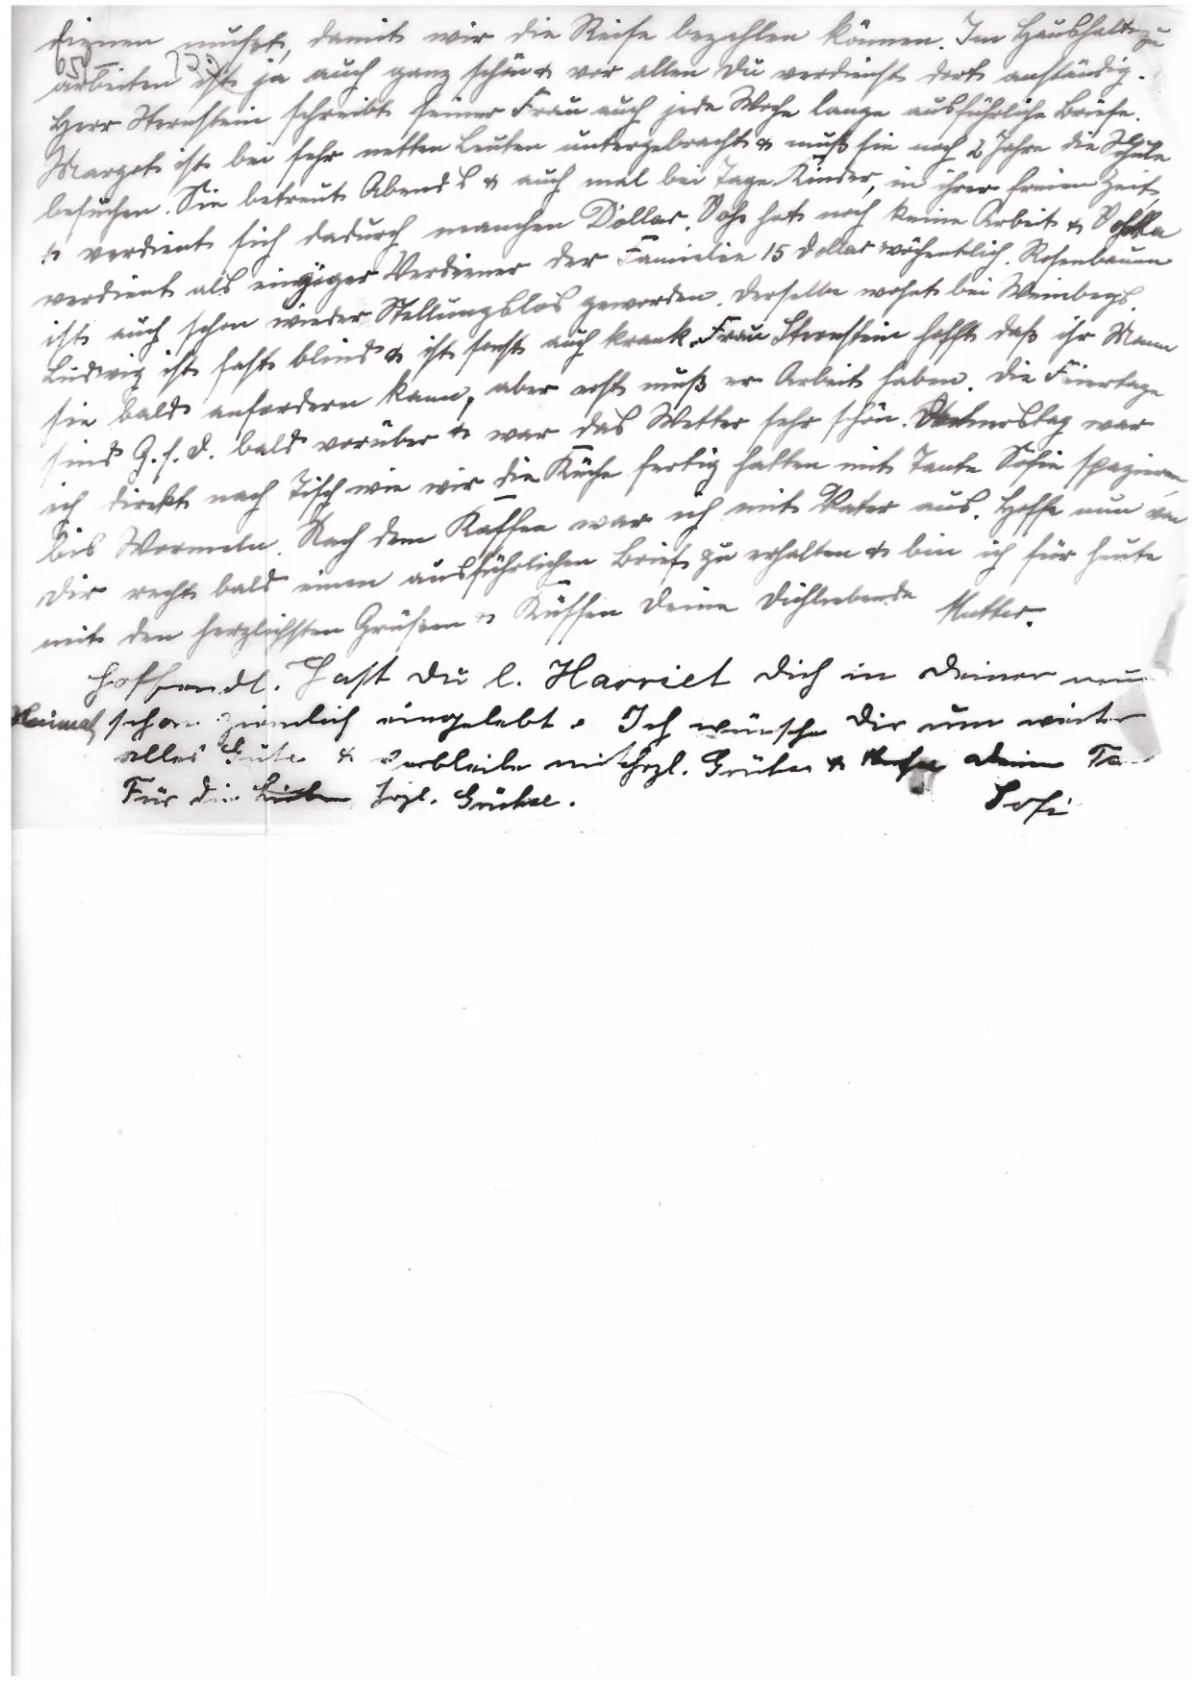 dienen mußt, damit wir die Reise bezahlen können. Im Haushalt zu
arbeiten ist ja auch ganz schön & vor allem Du verdienst dort anständig.
Herr Sternstein schreibt seiner Frau auch jede Woche lange ausführliche Briefe.
Margot ist bei sehr netten Leuten untergebracht & muß sie noch 2 Jahre die Schule
besuchen. Sie betreut Abends & auch mal bei Tage Kinder, in ihrer freien Zeit,
& verdient sich dadurch manchen Dollar. hat noch keine Arbeit &
verdient als einziger Verdiener der Familie 15 Dollar wöchentlich. Rosenbaum
ist auch schon wieder Stellungslos geworden. Derselbe wohnt bei Weinbergs.
Ludwig ist fast blind & ist sonst auch krank. Frau Sternstein hofft daß ihr Mann
sie bald anfordern kann, aber erst muß er Arbeit haben. Die Feiertage
sind G. s. D. bald vorüber & war das Wetter sehr schön. Donnerstag war
ich direkt nach Tisch wie wir die Küche fertig hatten mit Tante Sofie spazieren
bis Wormeln. Nach dem Kaffee war ich mit Vater aus. Hoffe nun von
Dir recht bald einen ausführlichen Brief zu erhalten & bin ich für heute
mit den herzlichsten Grüßen & Küssen Deine Dichliebende Mutter.
Hoffendl. hast Du l. Harriet Dich in Deiner neu
Heimat schon ziemlich eingelebt. Ich wünsche Dir nun weiter
alles Gute & verbleibe mit hrzl. Grüßen & Deine Ta
Für die Lieben hrzl. Grüße. Sofi